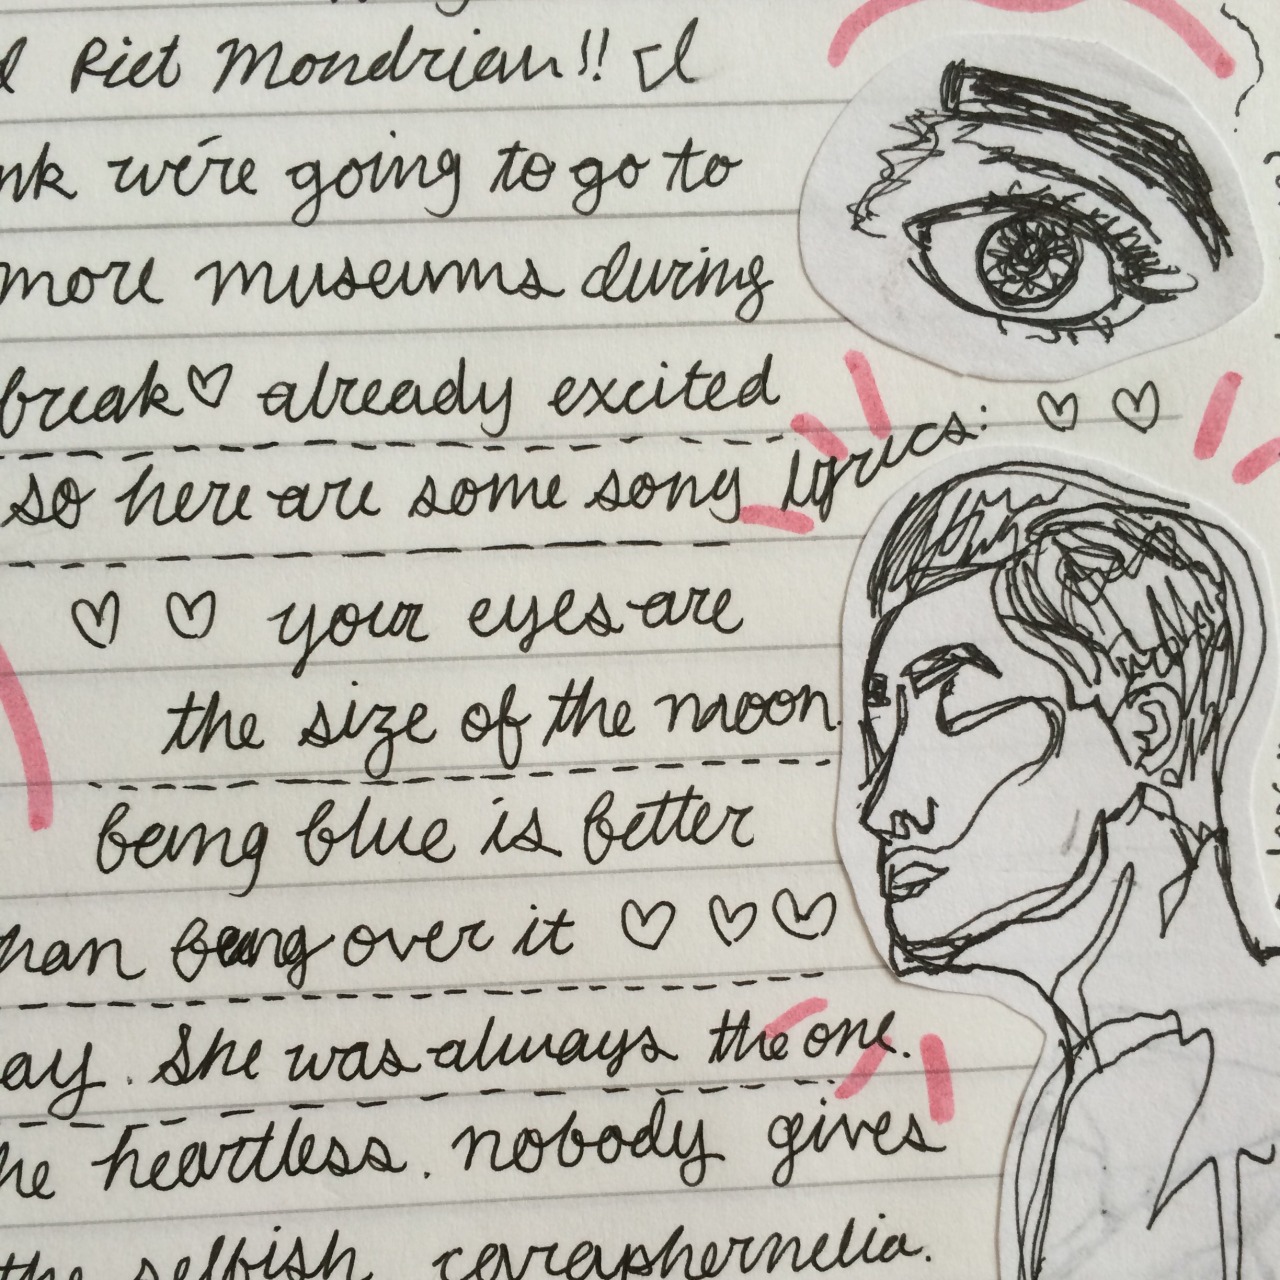 Piet Mondrian!! I
nk we're going to go to
more museums during
break♡ already excited
so here are some song lyrics: ♡ ♡
♡ ♡ your eyes are
the size of the moon.
being blue is better
han being over it ♡ ♡ ♡
ay. She was always the one.
he heartless. nobody gives
the selfish caraphernelia.